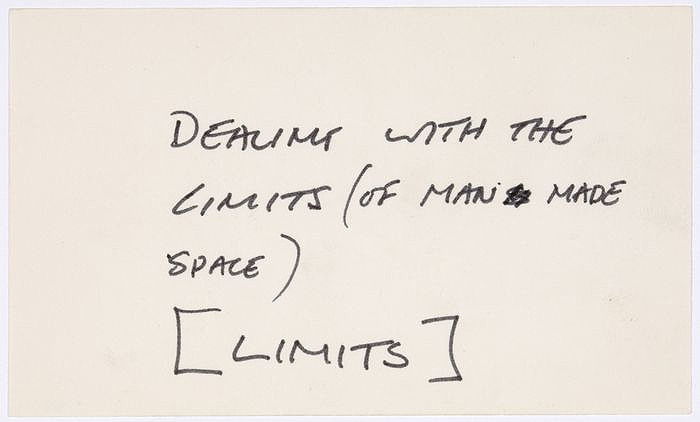 DEALING WITH THE
LIMITS (OF MAN MADE
SPACE)
[LIMITS]